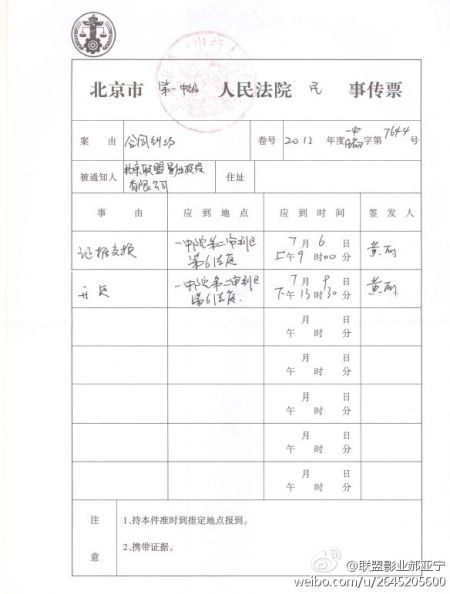 北京市 第一中级 人民法院 民 事传票
案由 合同纠纷 卷号 2012 年度一中民初字第7644号
被通知人 北京联盟影业投资有限公司 住址
事由 应到地点 应到时间 签发人
证据交换 一中院第二审判区第61法庭 7月6日上午9时00分
开庭 一中院第二审判区第61法庭 7月9日下午13时30分
月 日
午 时 分
月 日
午 时 分
月 日
午 时 分
月 日
午 时 分
月 日
午 时 分
注意
1、持本件准时到指定地点报到。
2、携带证据。
@联盟影业郝亚宁
weibo.com/u/2645205600